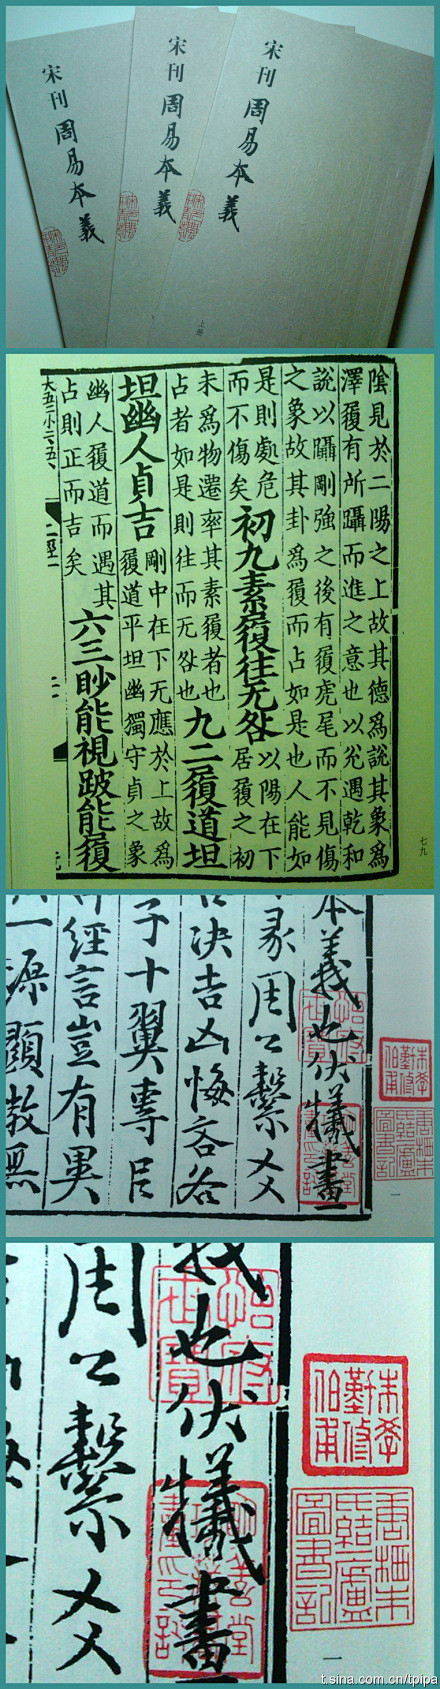 宋刊周易本義
宋刊周易本義
宋刊周易本義
上册
陰見於二陽之上故其德為說其象為
澤履有所躡而進之意也以兊遇乾和
說以躡剛強之後有履虎尾而不見傷
之象故其卦為履而占如是也人能如
是則處危
而不傷矣
初九素履往无咎
以陽在下
居履之初
未為物遷率其素履者也
占者如是則往而无咎也
九二履道坦
坦幽人貞吉
剛中在下无應於上故為
履道平坦幽獨守貞之象
幽人履道而遇其
占則正而吉矣
六三眇能視跛能履
七九
本義也伏犧畫
彖周公繫爻
決吉凶悔吝各
子十翼專
經言豈有異
一源顯微無
朱學勤修伯甫
唐栖朱氏結廬圖書記
一
也伏犧畫
周公繫爻
朱學勤修伯甫
唐栖朱氏結廬圖書記
一
t.sina.com.cn/tpipa